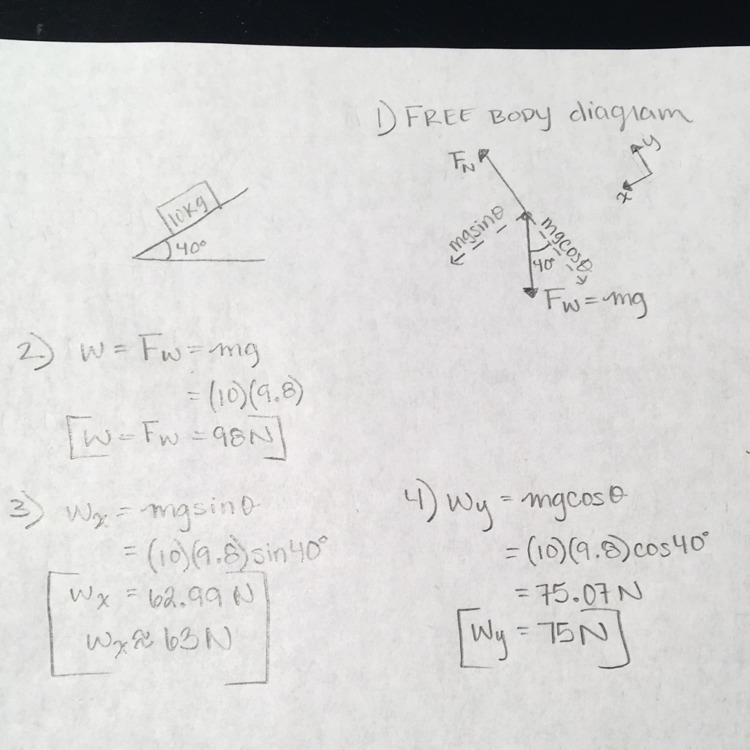 1) FREE BODY diagram
F_N
y
x
10kg
40°
mgsinθ
mgcosθ
40°
F_W = mg
2.) W = F_W = mg
= (10)(9.8)
[W = F_W = 98N]
3) W_x = mgsinθ
= (10)(9.8)sin40°
W_x = 62.99 N
W_x ≈ 63N
4) W_y = mgcosθ
= (10)(9.8)cos40°
= 75.07 N
[W_y = 75N]